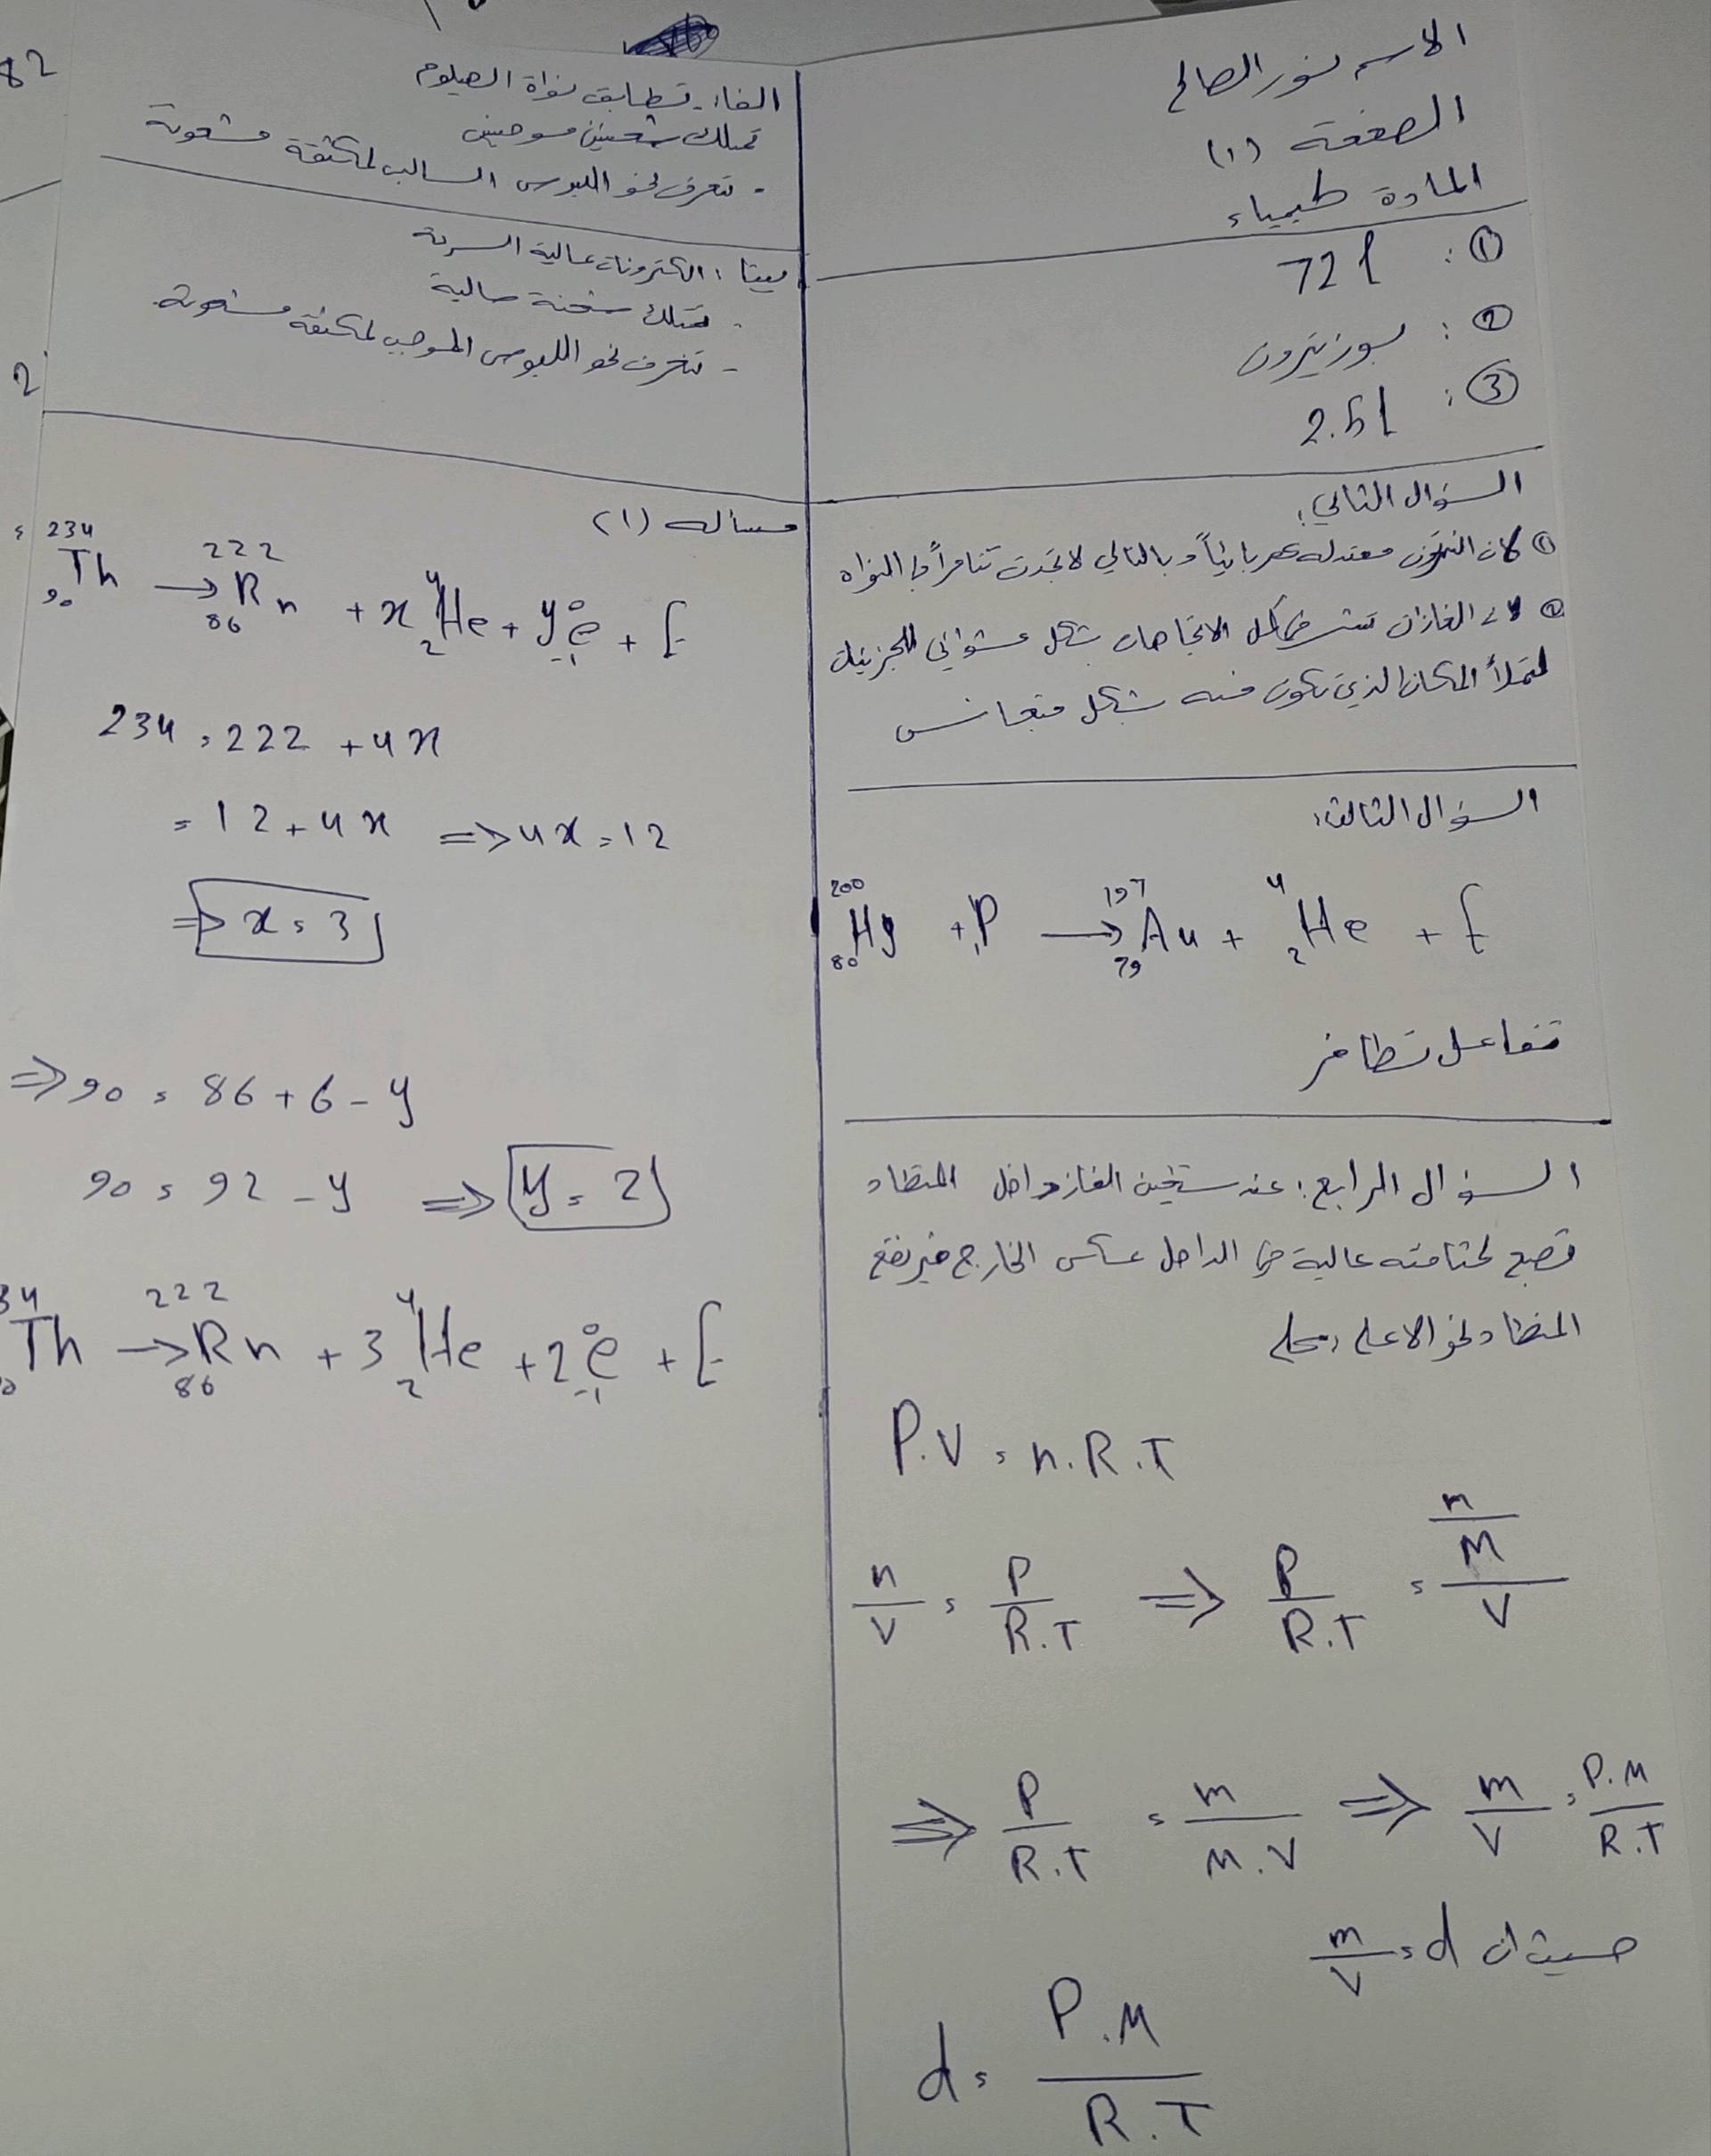 الاسم نور الصالح
الصفحة (1)
المادة كيمياء
① : 72 l
② : بوزيترون
③ : 2.5 l
السؤال الثاني:
① لان النترون معتدله كهربائياً وبالتالي لا تحدث تنافراً في النواه
② لان الغازات تنتشر في كل الاتجاهات بشكل عشوائي
لتملأ المكان الذي تكون فيه بشكل متجانس
السؤال الثالث:
200 80 Hg + 1 1 P → 197 79 Au + 4 2 He + E
تفاعل تطافر
السؤال الرابع: عند تسخين الغاز داخل المنطاد
تصبح كتافته عالية في الداخل عكس الخارج فيرتفع
المنطاد نحو الاعلى
P.V = n.R.T
n/V = P/R.T ⇒ P/R.T = m/M/V
⇒ P/R.T = m/M.V ⇒ m/V = P.M/R.T
حيث ان d = m/V
d = P.M/R.T
الفا: - تطابق نواة الهيلوم
تملك شحنتين موجبتين
- تنحرف نحو اللبوس السالب لمكثفة مشحونة
بيتا: الكترونات عالية السرعة
- تملك شحنة سالبة
- تنحرف نحو اللبوس الموجب لمكثفة مشحونة
مسأله (1)
234 90 Th → 222 86 Rn + x 4 2 He + y 0 -1 e + E
234 = 222 + 4x
= 12 + 4x ⇒ 4x = 12
⇒ x = 3
⇒ 90 = 86 + 6 - y
90 = 92 - y ⇒ y = 2
34 Th → 222 86 Rn + 3 4 2 He + 2 0 -1 e + E
82
2